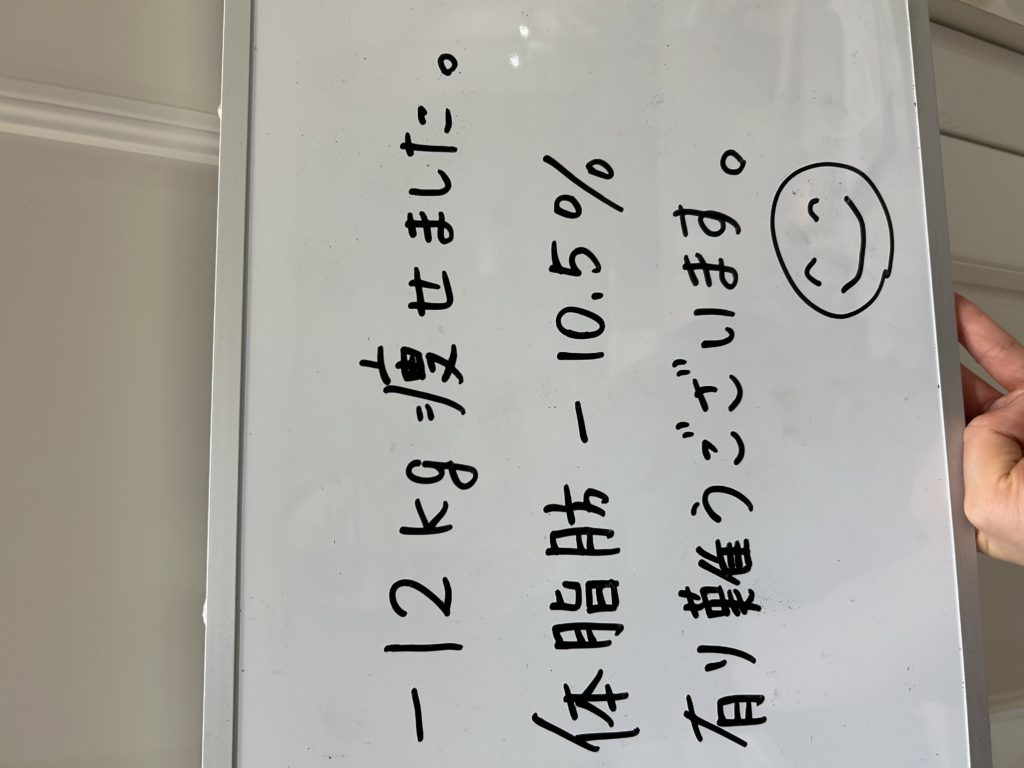 -12kg痩せました。
体脂肪-10.5%
有り難うございます。